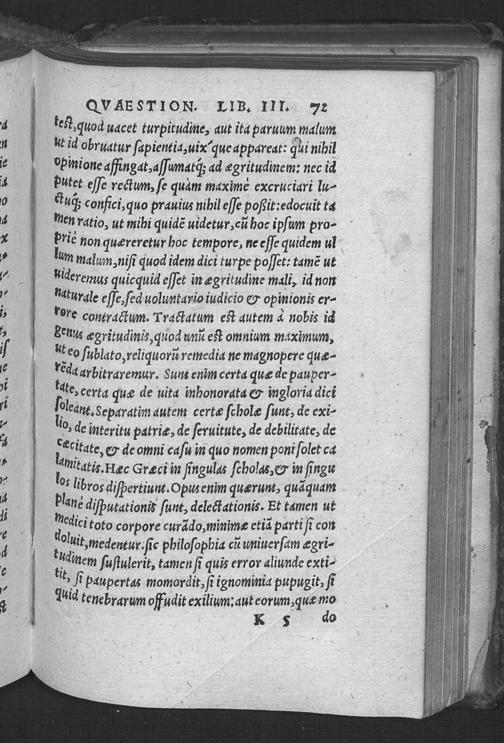 QVAESTION. LIB. III. 72
test, quod uacet turpitudine, aut ita paruum malum
ut id obruatur sapientia, uix'que appareat: qui nihil
opinione affingat, assumatq́; ad ægritudinem: nec id
putet esse rectum, se quàm maximè excruciari lu-
ctuq́; confici, quo prauius nihil esse poßit: edocuit ta
men ratio, ut mihi quidē uidetur, cū hoc ipsum pro-
priè non quæreretur hoc tempore, ne esse quidem ul
lum malum, nisi quod idem dici turpe posset: tamē ut
uideremus quicquid esset in ægritudine mali, id non
naturale esse, sed uoluntario iudicio & opinionis er-
rore contractum. Tractatum est autem à nobis id
genus ægritudinis, quod unū est omnium maximum,
ut eo sublato, reliquorū remedia ne magnopere quæ-
rēda arbitraremur. Sunt enim certa quæ de pauper-
tate, certa quæ de uita inhonorata & ingloria dici
soleant. Separatim autem certæ scholæ sunt, de exi-
lio, de interitu patriæ, de seruitute, de debilitate, de
cæcitate, & de omni casu in quo nomen poni solet ca
lamitatis. Hæc Græci in singulas scholas, & in singu
los libros dispertiunt. Opus enim quærunt, quāquam
plenè disputationis sunt, delectationis. Et tamen ut
medici toto corpore curādo, minimæ etiā parti si con
doluit, medentur: sic philosophia cū uniuersam ægri-
tudinem sustulerit, tamen si quis error aliunde exti-
tit, si paupertas momordit, si ignominia pupugit, si
quid tenebrarum offudit exilium: aut eorum, quæ mo
K 5 do